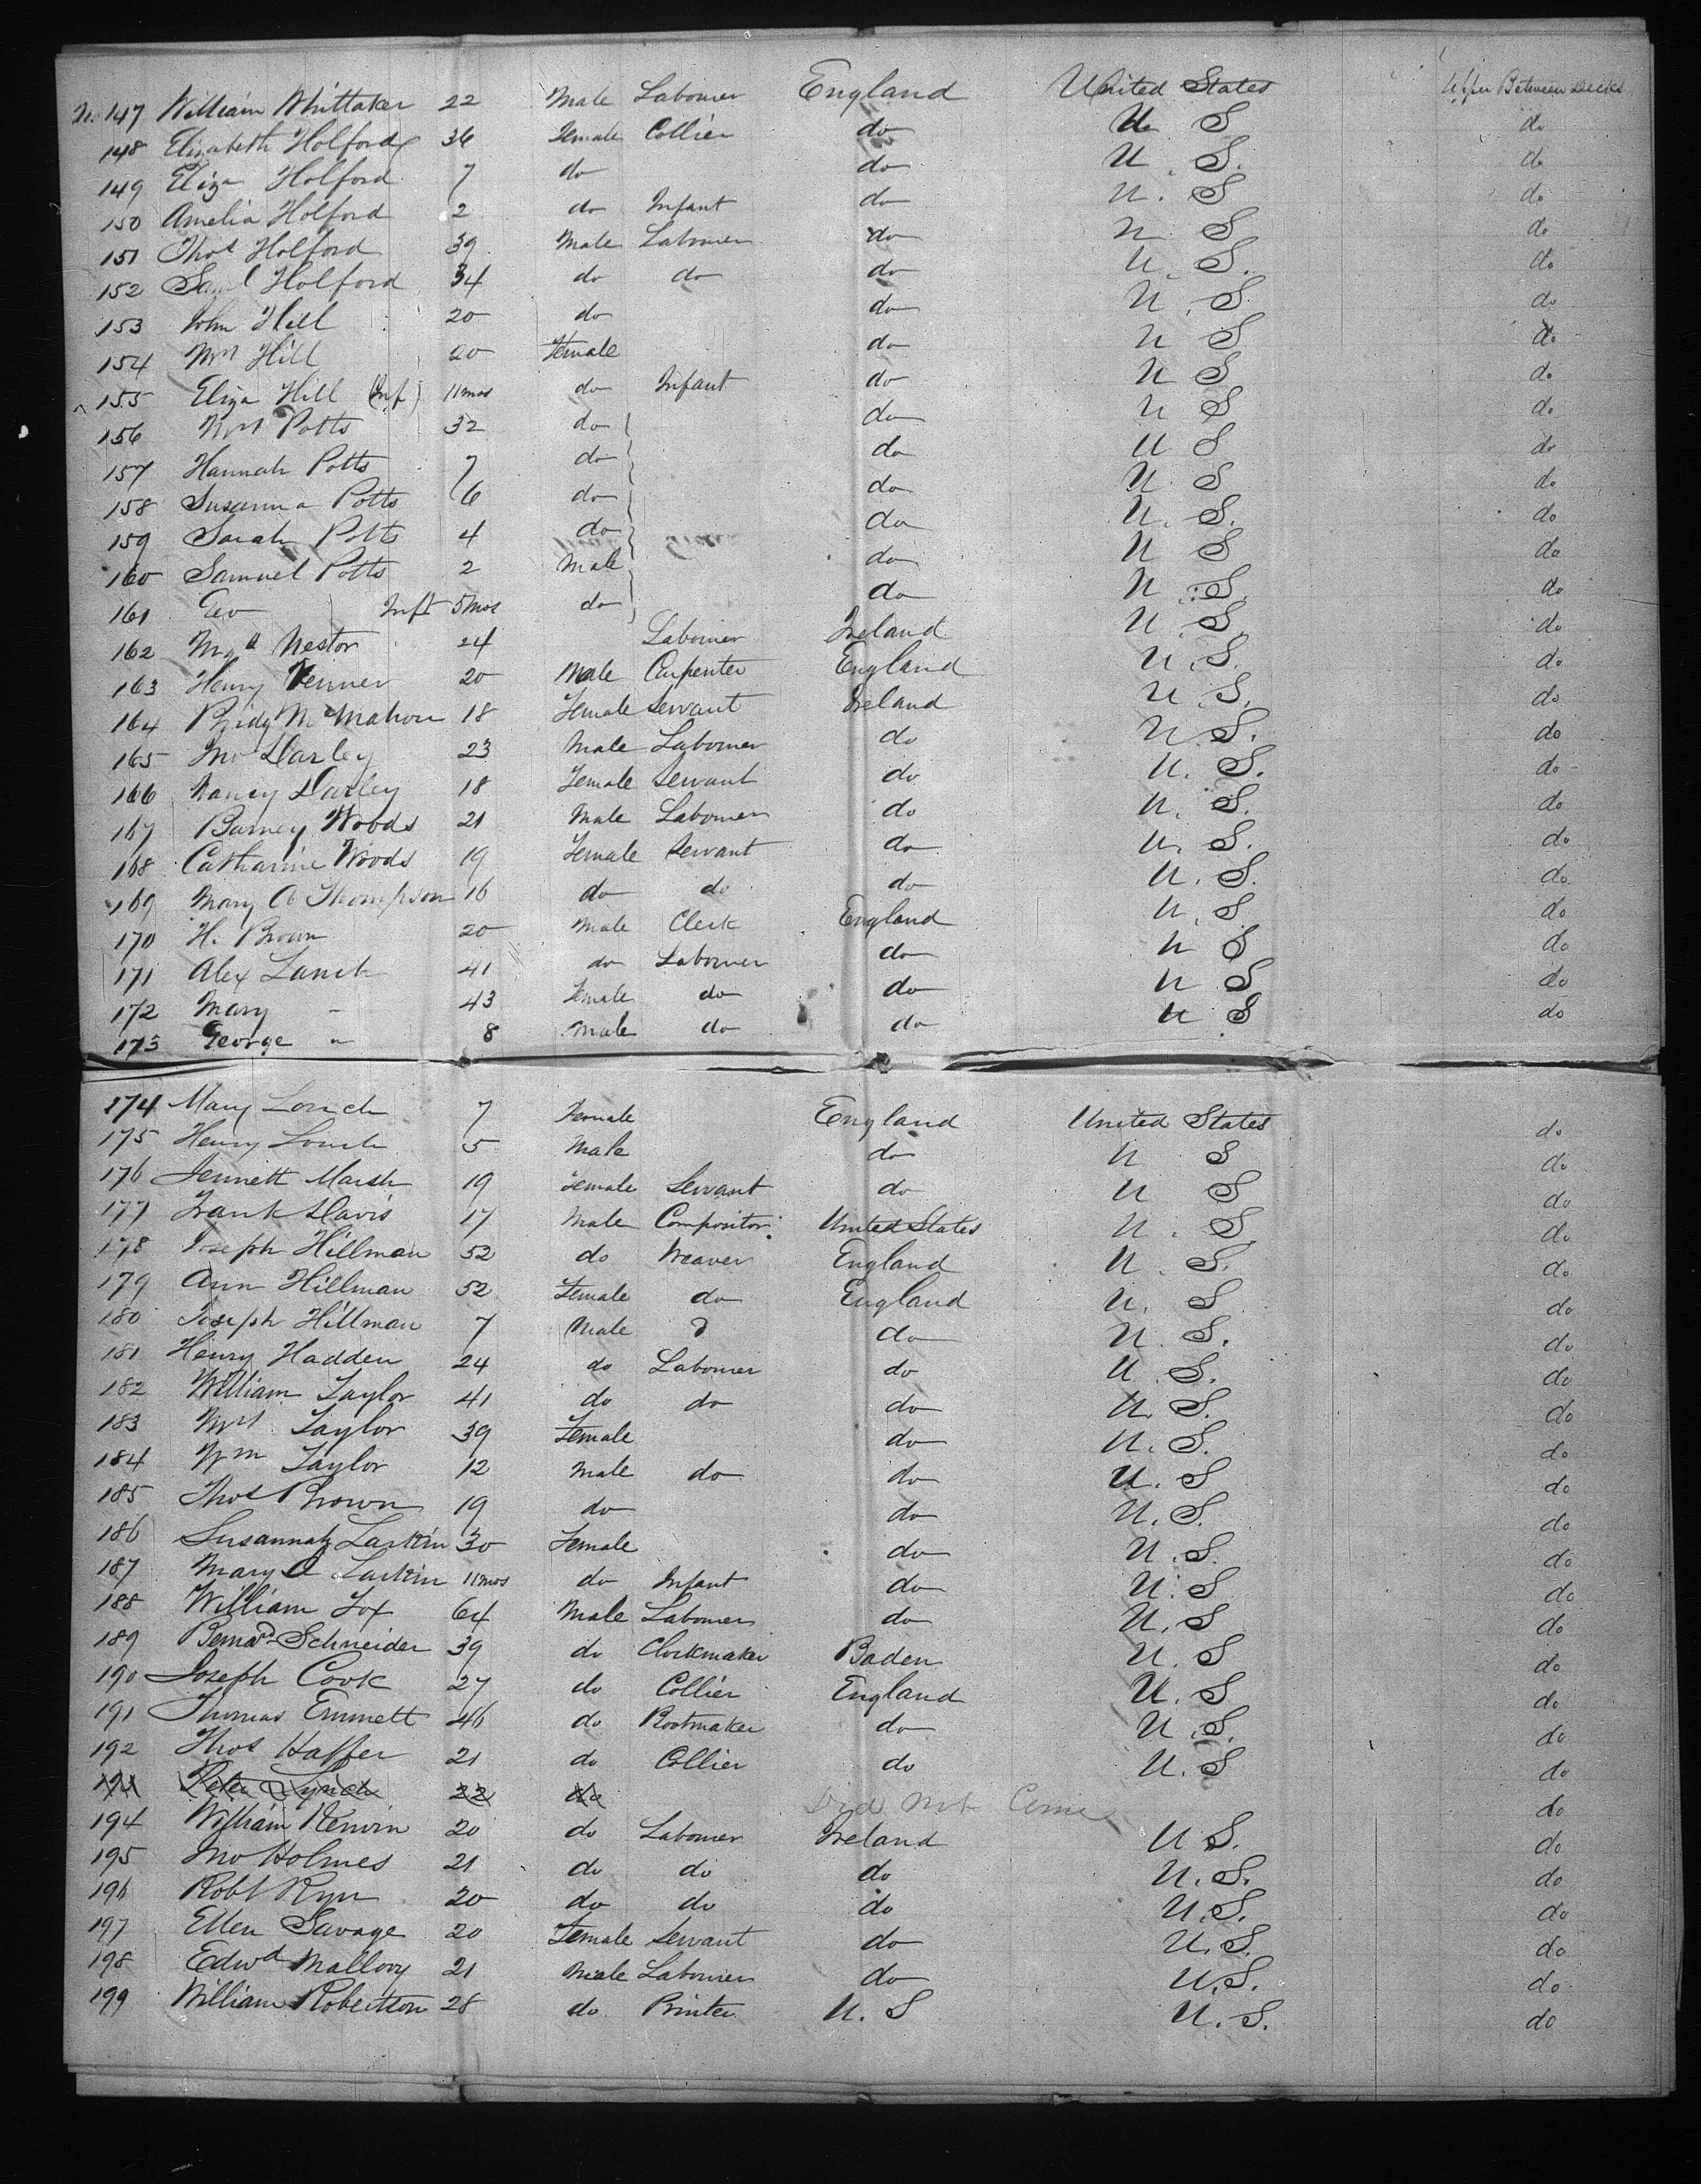 No 147 William Whittaker 22 Male Labourer England United States Upper Between Decks
148 Elizabeth Holford 36 Female Collier do U S do
149 Eliza Holford 7 do do U S. do
150 Amelia Holford 2 do Infant do U. S do
151 Thos Holford 39 Male Labourer do U S do
152 Saml Holford 34 do do do U. S. do
153 John Hill 20 do do U. S do
154 Mrs Hill 20 Female do U S do
155 Eliza Hill (Inf) 11mos do Infant do U S do
156 Mrs Potts 32 do do U S do
157 Hannah Potts 7 do do U S do
158 Susanna Potts 6 do do U. S do
159 Sarah Potts 4 do do U. S. do
160 Samuel Potts 2 Male do U S do
161 Geo Inft 5mos do do U. S. do
162 Nestor 24 Labourer Ireland U. S. do
163 Henry Venner 20 Male Carpenter England U. S. do
164 Bridg McMahon 18 Female Servant Ireland U S. do
165 Jno Darley 23 Male Labourer do U. S. do
166 Nancy Darley 18 Female Servant do U. S. do
167 Barney Woods 21 Male Labourer do U. S. do
168 Catharine Woods 19 Female Servant do U. S. do
169 Mary A Thompson 16 do do do U. S. do
170 H. Brown 20 Male Clerk England U. S do
171 Alex 41 do Labourer do U S do
172 Mary - 43 Female do do U S do
173 George " 8 Male do do U S do
174 Mary 7 Female England United States do
175 Henry 5 Male do U S do
176 Jennett Marsh 19 Female Servant do U S do
177 Frank Davis 17 Male Compositor United States U. S. do
178 Joseph Hillman 52 do Weaver England U. S. do
179 Ann Hillman 52 Female do England U. S do
180 Joseph Hillman 7 Male do U. S. do
181 Henry Hadden 24 do Labourer do U. S. do
182 William Taylor 41 do do do U. S. do
183 Mrs Taylor 39 Female do U. S. do
184 Wm Taylor 12 Male do do U. S do
185 Thos Brown 19 do do U. S. do
186 Susannah Larkin 30 Female do U. S. do
187 Mary A Larkin 11mos do Infant do U. S do
188 William Fox 64 Male Labourer do U. S do
189 Bernard Schneider 39 do Clockmaker Baden U. S do
190 Joseph Cook 27 do Collier England U. S do
191 Thomas Emmett 46 do Bootmaker do U. S. do
192 Thos 21 do Collier do U. S do
193 Peter Lynch 22 do Did not Come do
194 William Kerwin 20 do Labourer Ireland U S. do
195 Jno Holmes 21 do do do U. S. do
196 Robt Ryn 20 do do do U. S. do
197 Ellen Savage 20 Female Servant do U. S. do
198 Edwd Mallory 21 Male Labourer do U. S. do
199 William Robertson 28 do Printer U. S U. S. do